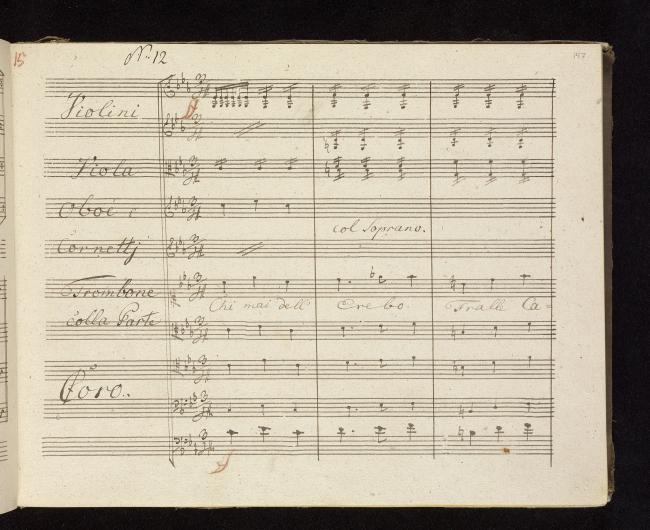 15
No. 12
157
Violini
Viola
Oboè e
Cornettj
col Soprano.
Trombone
Chi mai dell' Erebo Fralle Ca=
colla Parte
Coro.